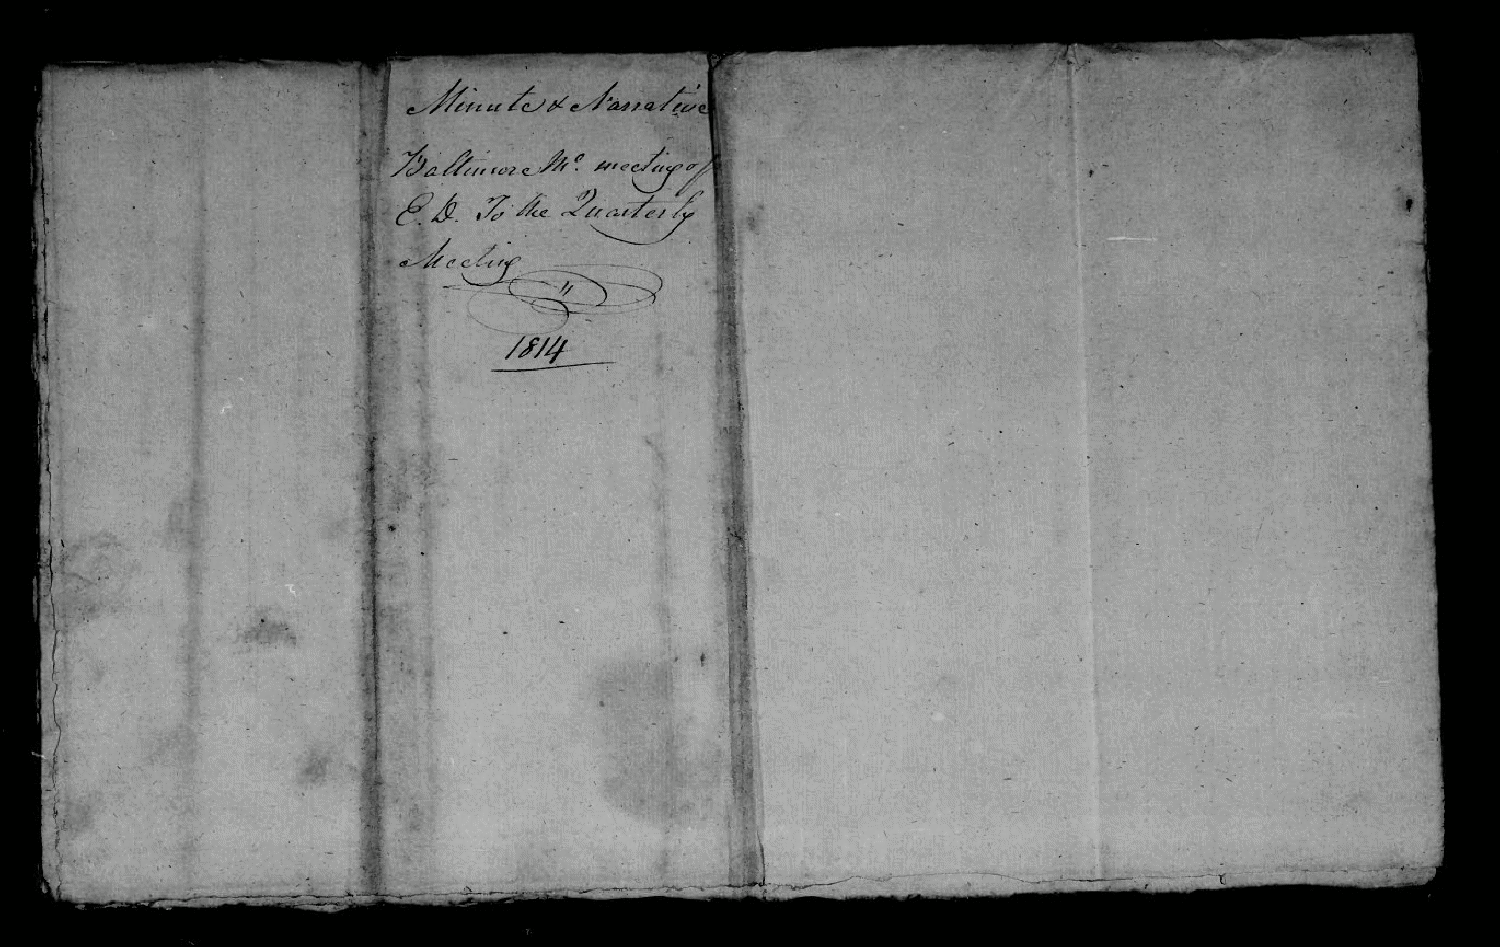 Minute & Narrative
Baltimore Mo. meeting of
E. D. To the Quarterly
Meeting
1814